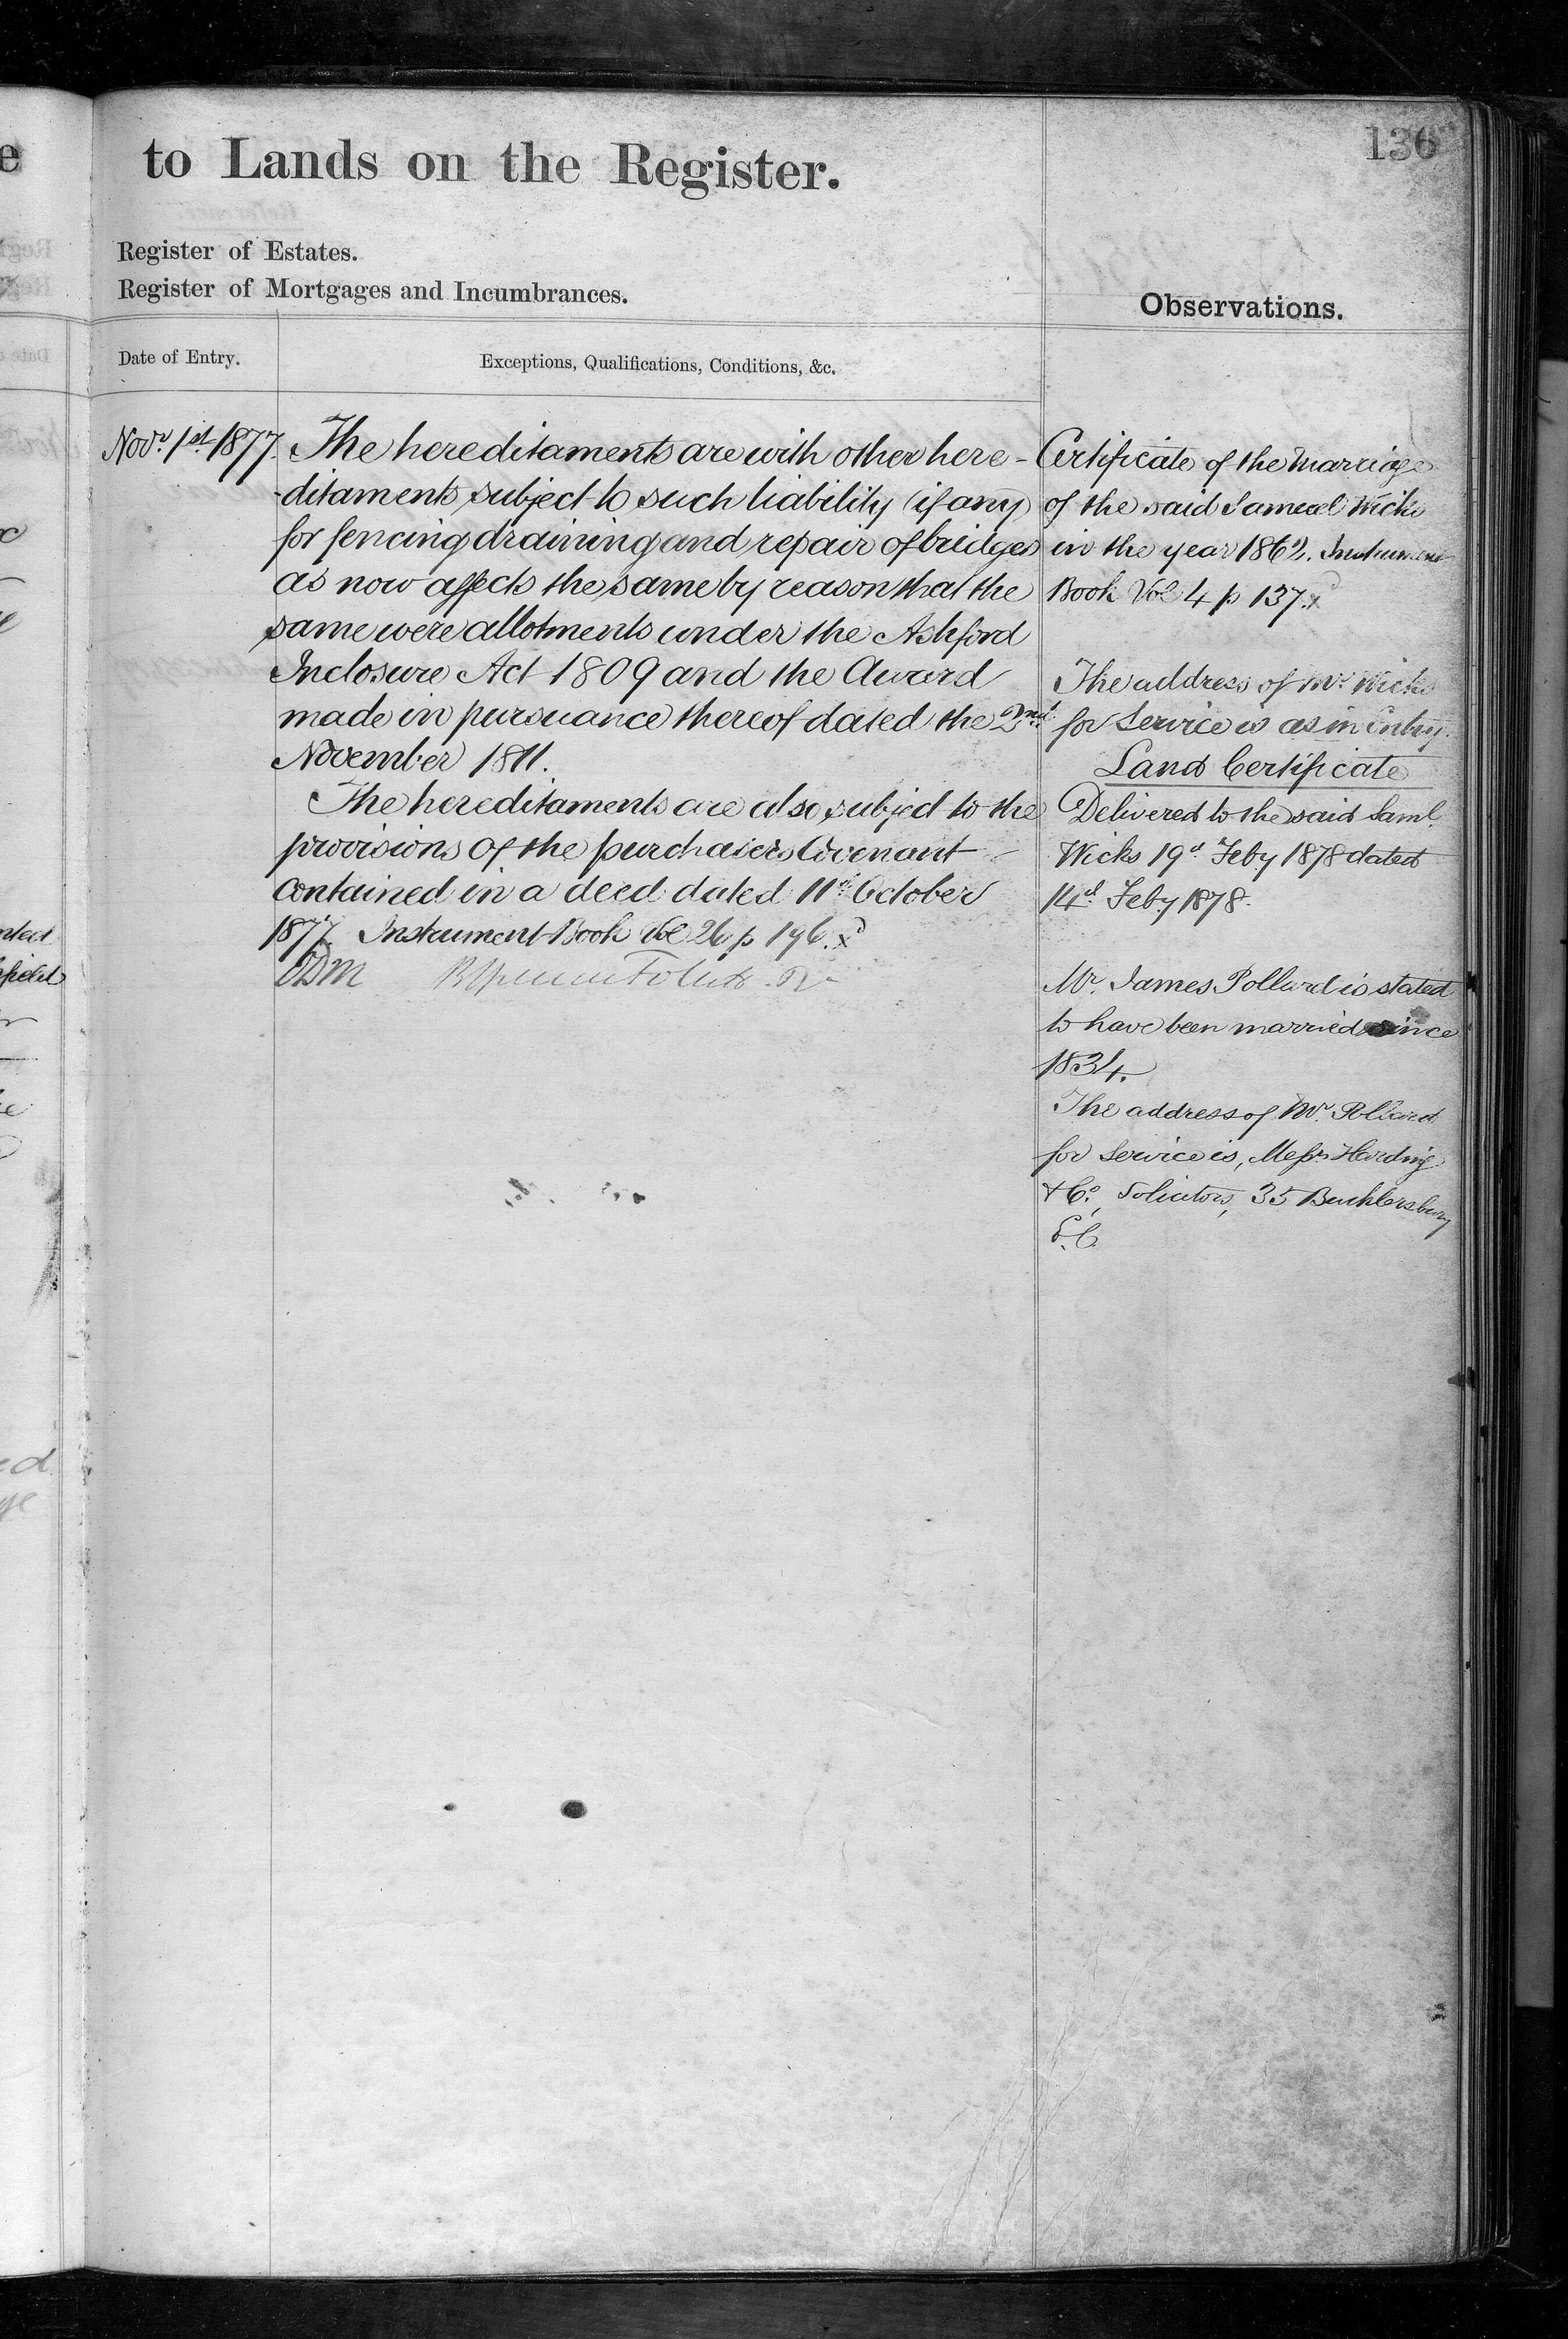 136
to Lands on the Register.
Register of Estates.
Register of Mortgages and Incumbrances.
Observations.
Date of Entry.
Exceptions, Qualifications, Conditions, &c.
Novr. 1st 1877.
The hereditaments are with other here-
-ditaments subject to such liability (if any)
for fencing draining and repair of bridges
as now affects the same by reason that the
same were allotments under the Ashford
Inclosure Act 1809 and the Award
made in pursuance thereof dated the 2nd
November 1811.
The hereditaments are also subject to the
provisions of the purchasers Covenant
contained in a deed dated 11th October
1877. Instrument Book Vol 26 p 196. xd
Certificate of the Marriage
of the said Samuel Wicks
in the year 1862. Instrument
Book Vol 4 p 137. xd
The address of Mr. Wicks
for Service is as in Entry.
Land Certificate
Delivered to the said Saml.
Wicks 19th Feby 1878 dated
14th Feby 1878.
Mr. James Pollard is stated
to have been married since
1834.
The address of Mr. Pollard
for Service is, Messrs Harding
& Co., Solicitors, 35 Bucklersbury
E.C.